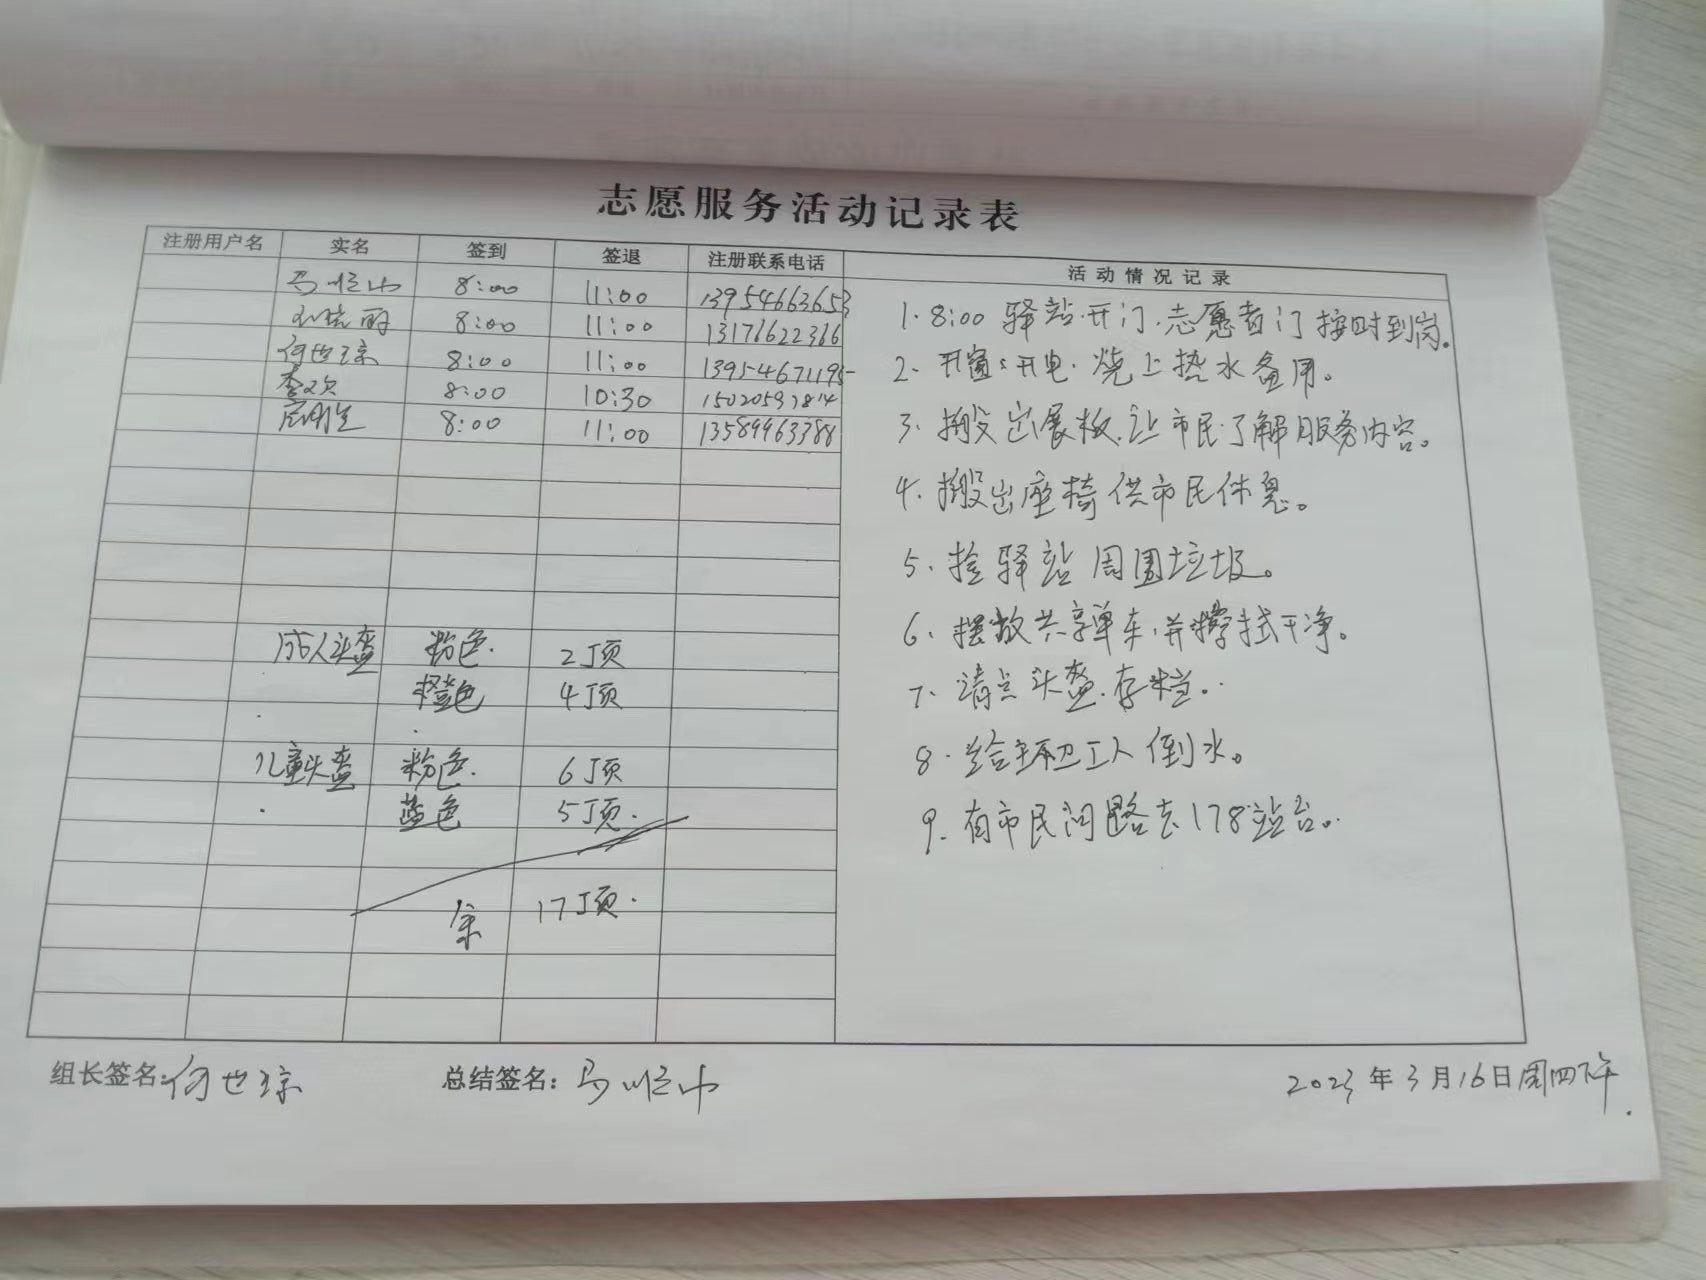 志愿服务活动记录表
注册用户名 实名 签到 签退 注册联系电话 活动情况记录
马顺山 8:00 11:00 13954663653
8:00 11:00 13176622366
何世琼 8:00 11:00 13954671195
李欢 8:00 10:30 15020597814
8:00 11:00 13589963388
成人头盔 粉色. 2顶
橙色 4顶
儿童头盔 粉色. 6顶
蓝色 5顶.
余 17顶.
1. 8:00 驿站开门,志愿者门按时到岗。
2. 开窗;开电.烧上热水备用。
3. 搬出展板,让市民了解服务内容。
4. 搬出座椅供市民休息。
5. 捡驿站周围垃圾。
6. 摆放共享单车,并擦拭干净。
7. 清点头盔,存档。
8. 给环卫工人倒水。
9. 有市民问路去178站台。
组长签名:何世琼 总结签名:马顺山 2023年3月16日周四下午.